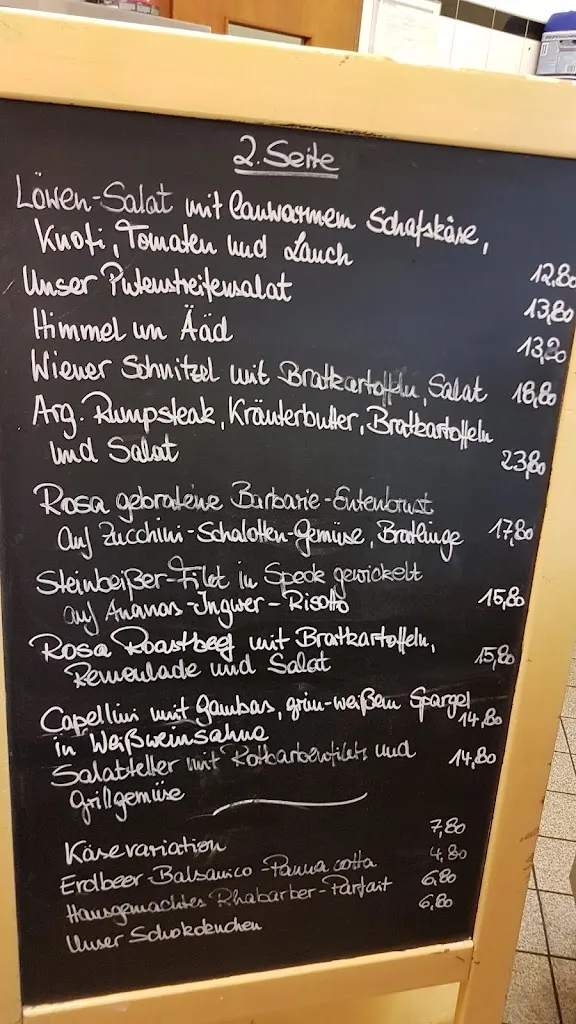 2. Seite
Löwen-Salat mit lauwarmem Schafskäse,
Knofi, Tomaten und Lauch 12,80
Unser Putenstreifensalat 13,80
Himmel un Ääd 13,80
Wiener Schnitzel mit Bratkartoffeln, Salat 18,80
Arg. Rumpsteak, Kräuterbutter, Bratkartoffeln
und Salat 23,80
Rosa gebratene Barbarie-Entenbrust
auf Zucchini-Schalotten-Gemüse, Bratlinge 17,80
Steinbeißer-Filet in Speck gewickelt
auf Ananas-Ingwer-Risotto 15,80
Rosa Roastbeef mit Bratkartoffeln,
Remoulade und Salat 15,80
Capellini mit Gambas, grün-weißem Spargel
in Weißweinsahne 14,80
Salatteller mit Rotbarbenfilets und
Grillgemüse 14,80
Käsevariation 7,80
Erdbeer-Balsamico-Panna cotta 4,80
Hausgemachtes Rhabarber-Parfait 6,80
Unser Schokoküchen 6,80